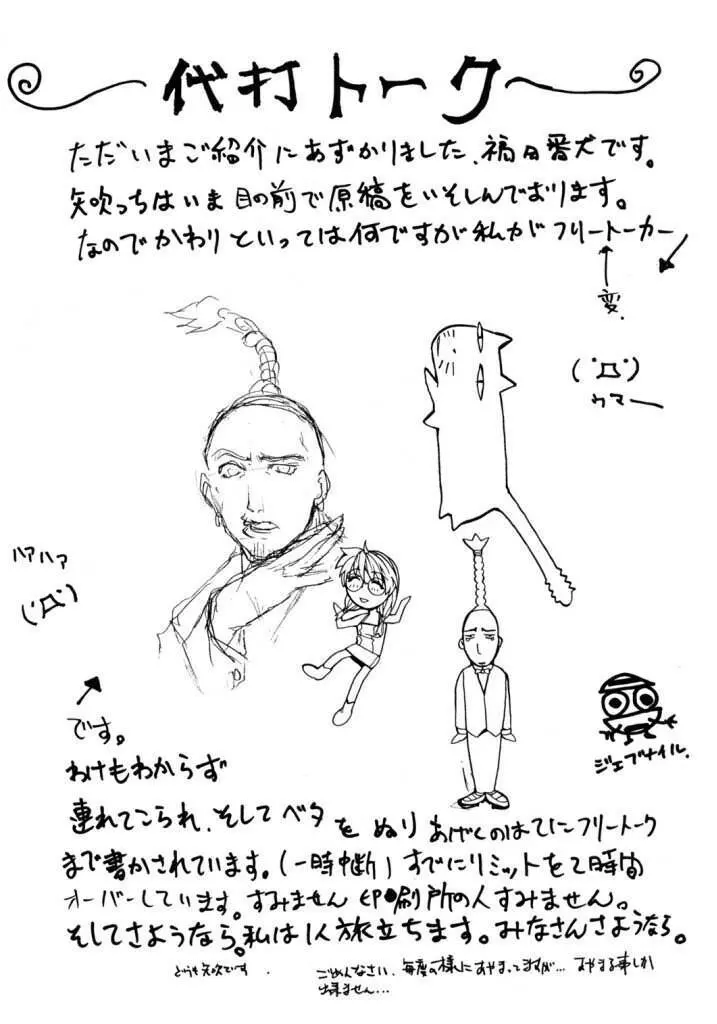 代打トーク
ただいまご紹介にあずかりました、禍日番犬です。
矢吹っちはいま目の前で原稿をいそしんでおります。
なのでかわりといっては何ですが私がフリートーカー
変。
(゚Д゚)
ウマー
ハアハア
(゚Д゚)
です。
ジェブナイル。
わけもわからず
連れてこられ、そしてベタをぬりあげくのはてにフリートーク
まで書かされています。(一時中断)すでにリミットを2時間
オーバーしています。すみません印刷所の人すみません。
そしてさようなら。私は1人旅立ちます。みなさんさようなら。
どうも矢吹です
ごめんなさい、毎度の様にあやまってますが…あやまる事しか
出来ません…